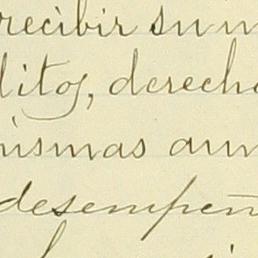 recibir sum
ditos, derecho
mismas aun
desempeñ